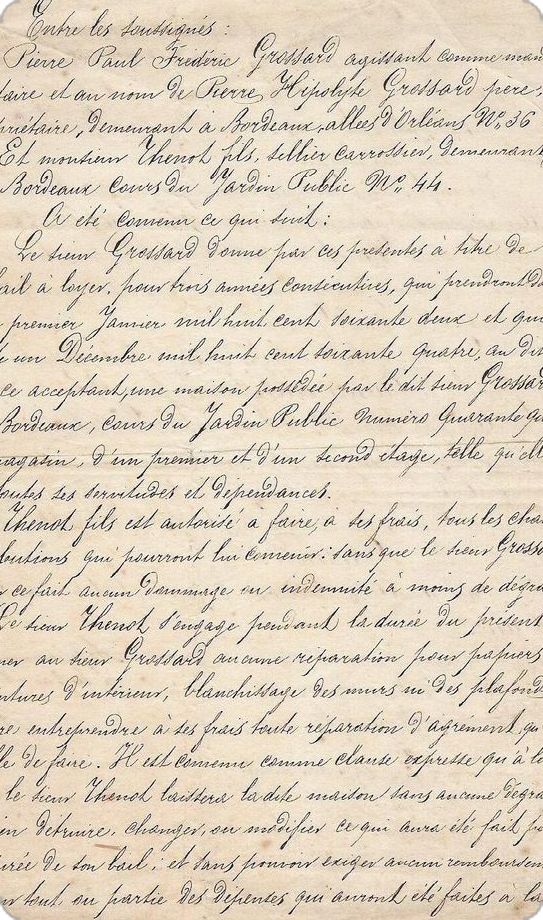 Entre les soussignés :
Pierre Paul Frédéric Grossard agissant comme man
taire et au nom de Pierre Hipolyte Grossard père,
priétaire, demeurant à Bordeaux, allées d'Orléans N° 36
Et monsieur Thenot fils, sellier carrossier, demeurant
Bordeaux cours du Jardin Public N° 44.
A été convenu ce qui suit :
Le sieur Grossard donne par ces présentes à titre de
ail à loyer, pour trois années consécutives, qui prendront
premier Janvier mil huit cent soixante deux et
un Décembre mil huit cent soixante quatre, au dit
ce acceptant, une maison possédée par le dit sieur Grossard
Bordeaux, cours du Jardin Public numéro Quarante
magasin, d'un premier et d'un second étage, telle qu'elle
toutes ses servitudes et dépendances.
Thenot fils est autorisé à faire, à ses frais, tous les cha
butions qui pourront lui convenir : sans que le sieur Grossa
ce fait aucun dommage ou indemnité à moins de dégra
Le sieur Thenot s'engage pendant la durée du présent
au sieur Grossard aucune réparation pour papiers
ntures d'intérieur, blanchissage des murs ni des plafonds
re entreprendre à ses frais toute réparation d'agrément, qu
le de faire. Il est convenu comme clause expresse qu'à l
le sieur Thenot laissera ladite maison sans aucune dégra
en détruire, changer, ou modifier ce qui aura été fait,
urée de son bail ; et sans pouvoir exiger aucun remboursem
tout ou partie des dépenses qui auront été faites à la